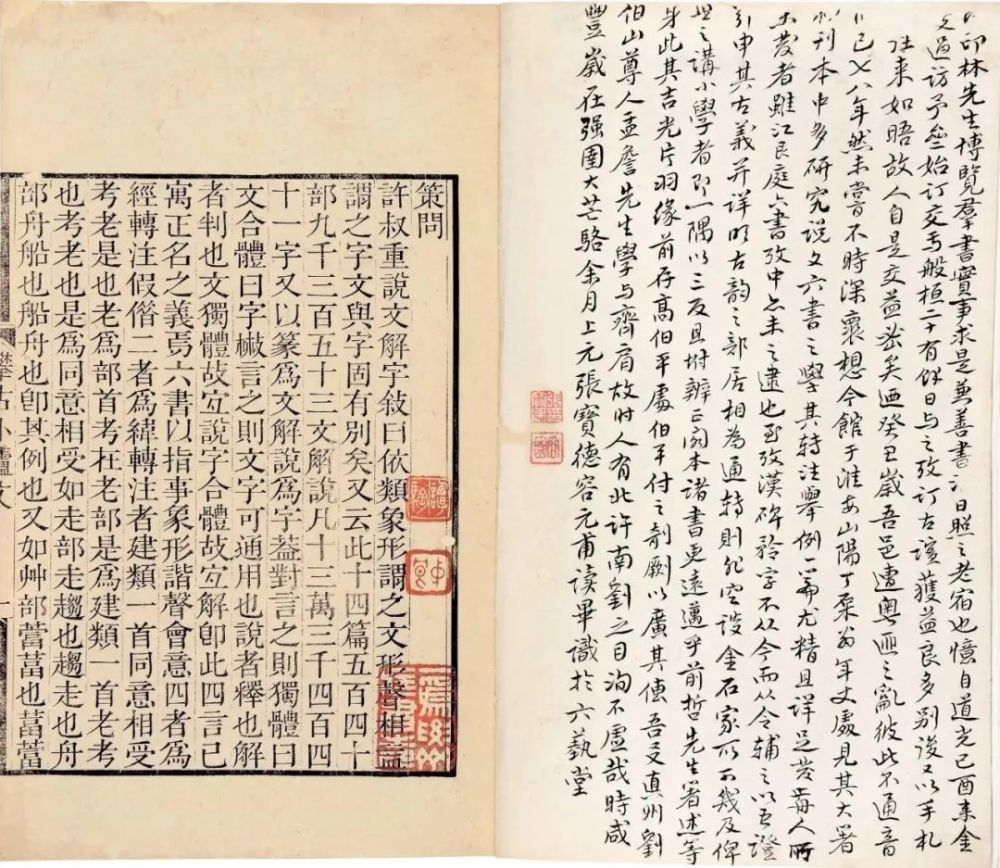 印林先生博覽羣書實事求是兼善書日照之老宿也憶自道光己酉來金
過訪予始訂交焉般桓二十有餘日與之攷訂古誼獲益良多別後又以手札
往来如晤故人自是交益密矣迺癸丑歲吾邑遭粵匪之亂彼此不通音
已七八年然未嘗不時深褱想今館于淮安山陽丁翁年丈處見其大著
刊本中多研究說文六書之學其轉注舉例一篇尤精且詳足發前人所
未發者雖江艮庭六書攷中亦未之逮也至攷漢碑矜字不从今而从令輔之以吾證
引申其古義并詳明古韻之部居相為通轉則非空談金石家所可幾及俾
世之講小學者即一隅以三反且坿辨正閣本諸書更遠邁乎前哲先生著述等
身此其吉光片羽緣前存高伯平處伯平付之剞劂以廣其傳吾友真州劉
伯山尊人孟詹先生學與齊肩故时人有此許南劉之目洵不虛哉時咸
豐歲在强圉大芒駱余月上元張寶德容元甫讀畢識於六藝堂
策問
許叔重說文解字敍曰依類象形謂之文形聲相益
謂之字文與字固有別矣又云此十四篇五百四十
部九千三百五十三文解說凡十三萬三千四百四
十一字又以篆爲文解說爲字葢對言之則獨體曰
文合體曰字㪚言之則文字可通用也說者釋也解
者判也文獨體故宐說字合體故宐解卽此四言已
寓正名之義焉六書以指事象形諧聲會意四者爲
經轉注假偺二者爲緯轉注者建類一首同意相受
考老是也老爲部首考在老部是爲建類一首老考
也考老也是爲同意相受如走部走趨也趨走也舟
部舟船也船舟也卽其例也又如艸部䔰葍也葍䔰